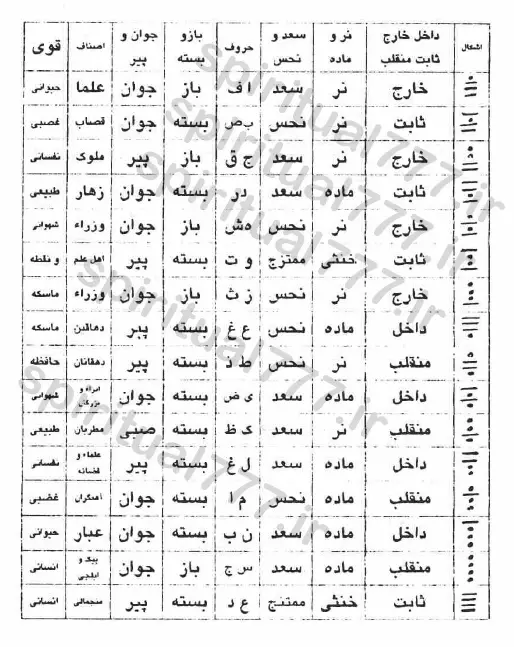 اشکال داخل خارج ثابت منقلب نر و ماده سعد و نحس حروف بازو بسته جوان و پیر اصناف قوی
خارج نر سعد ا ف باز جوان علما حیوانی
ثابت نر نحس ب ص بسته جوان قصاب غصبی
خارج نر سعد ج ق باز پیر ملوک نفسانی
ثابت ماده سعد د ر بسته جوان زهار طبیعی
خارج نر نحس ه ش باز جوان وزراء شهوانی
ثابت خنثی ممتزج و ت بسته پیر اهل علم و نلطه
خارج نر نحس ز ث باز جوان وزراء ماسکه
داخل ماده نحس ع غ بسته پیر دهاقین ماسکه
منقلب نر نحس ط ذ بسته پیر دهقانان حافظه
داخل ماده سعد ی ض بسته جوان امراء و بزرگان شهوانی
منقلب نر سعد ک ظ بسته صبی مطربان طبیعی
داخل ماده سعد ل غ بسته پیر علماء و نفسانی
منقلب ماده نحس م ا بسته جوان آهنگران غضبی
داخل ماده سعد ن ب بسته جوان عبار حیوانی
منقلب ماده سعد س ج باز جوان پیک و ایلچی انسانی
ثابت خنثی ممتنج ع د بسته پیر منجمالی انسانی
spiritual777.ir
spiritual777.ir
spiritual777.ir
spiritual777.ir